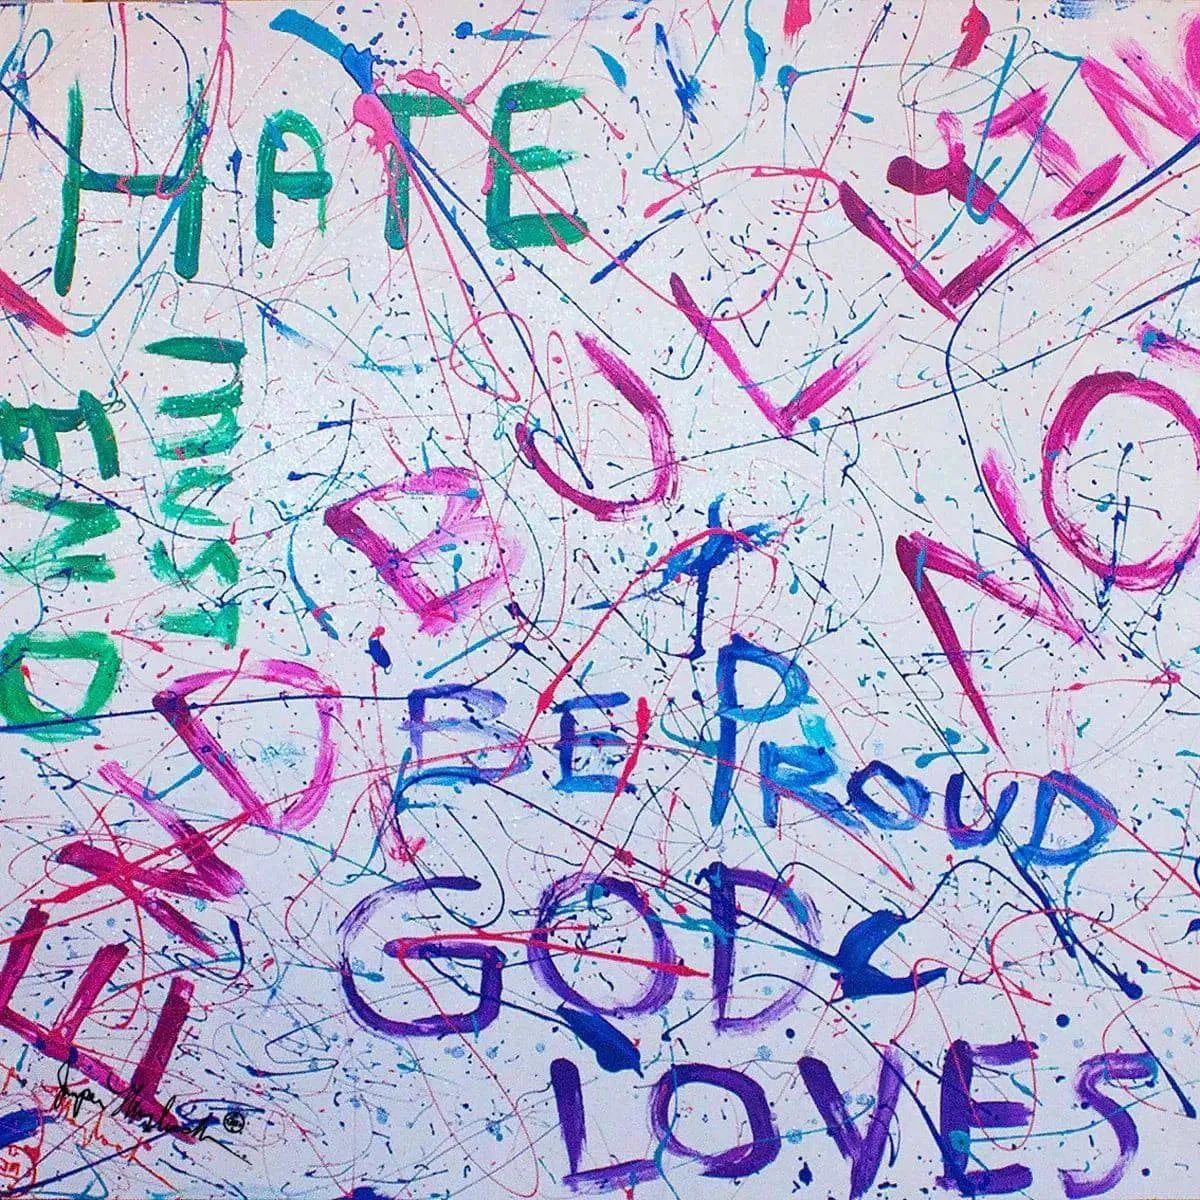 HATE
MUST
END
END BULLYIN
NO
BE PROUD
GOD
LOVES